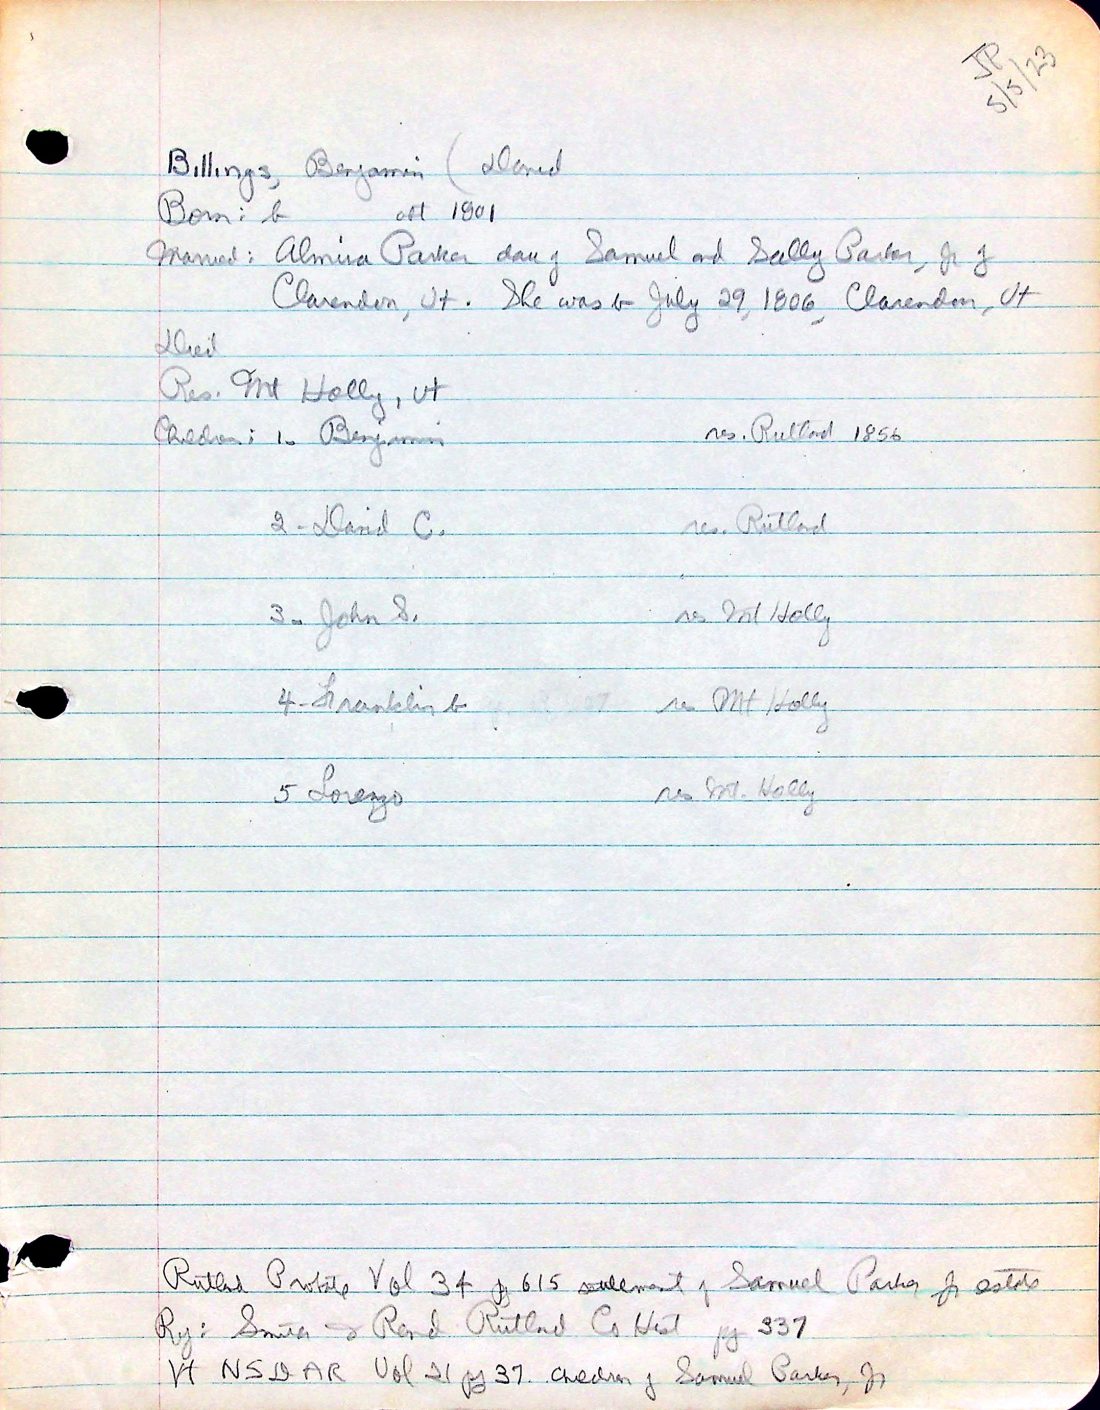 JP
5/5/23
Billings, Benjamin ( David
Born: b abt 1801
Married: Almira Parker dau of Samuel and Sally Parker, Jr of
Clarendon, Vt. She was b July 29, 1806, Clarendon, Vt
Died
Res. Mt Holly, Vt
Children: 1. Benjamin res. Rutland 1856
2 - David C. res. Rutland
3. John S. res Mt Holly
4 - Franklin b res Mt Holly
5 Lorenzo res Mt. Holly
Rutland Probate Vol 34 pg 615 settlement of Samuel Parker Jr estate
Ref: Smith & Rand Rutland Co Hist pg 337
Vt NSDAR Vol 21 pg 37. Children of Samuel Parker, Jr